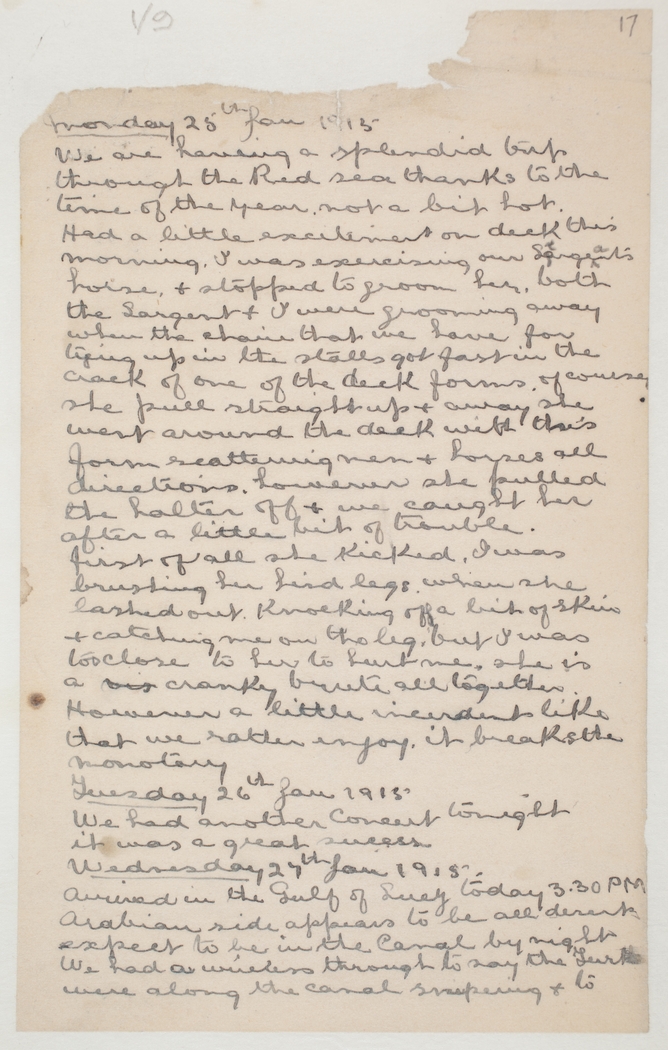 V9
17
Monday 25th Jan 1915
We are having a splendid trip
through the Red sea thanks to the
time of the year. not a bit hot.
Had a little excitement on deck this
morning. I was exercising our Sargeants
horse, & stopped to groom her, both
the Sargent & I were grooming away
when the chain that we have for
tying up in the stalls got fast in the
crack of one of the deck forms. of course,
she pull straight up & away she
went around the deck with this
form scattering men & horses all
directions. however she pulled
the halter off & we caught her
after a little bit of trouble.
first of all she kicked, I was
brushing her hind legs. when she
lashed out. Knocking off a bit of skin
& catching me on the leg, but I was
too close to her to hurt me. she is
a cranky brute all together.
However a little incident like
that we rather enjoy. it breaks the
monotany
Tuesday 26th Jan 1915
We had another Concert tonight
it was a great sucess
Wednesday 27th Jan 1915.
Arrived in the Gulf of Suez today 3.30 PM
Arabian side appears to be all desert
expect to be in the Canal by night
We had a wireless through to say the Turks
were along the canal snipering & to